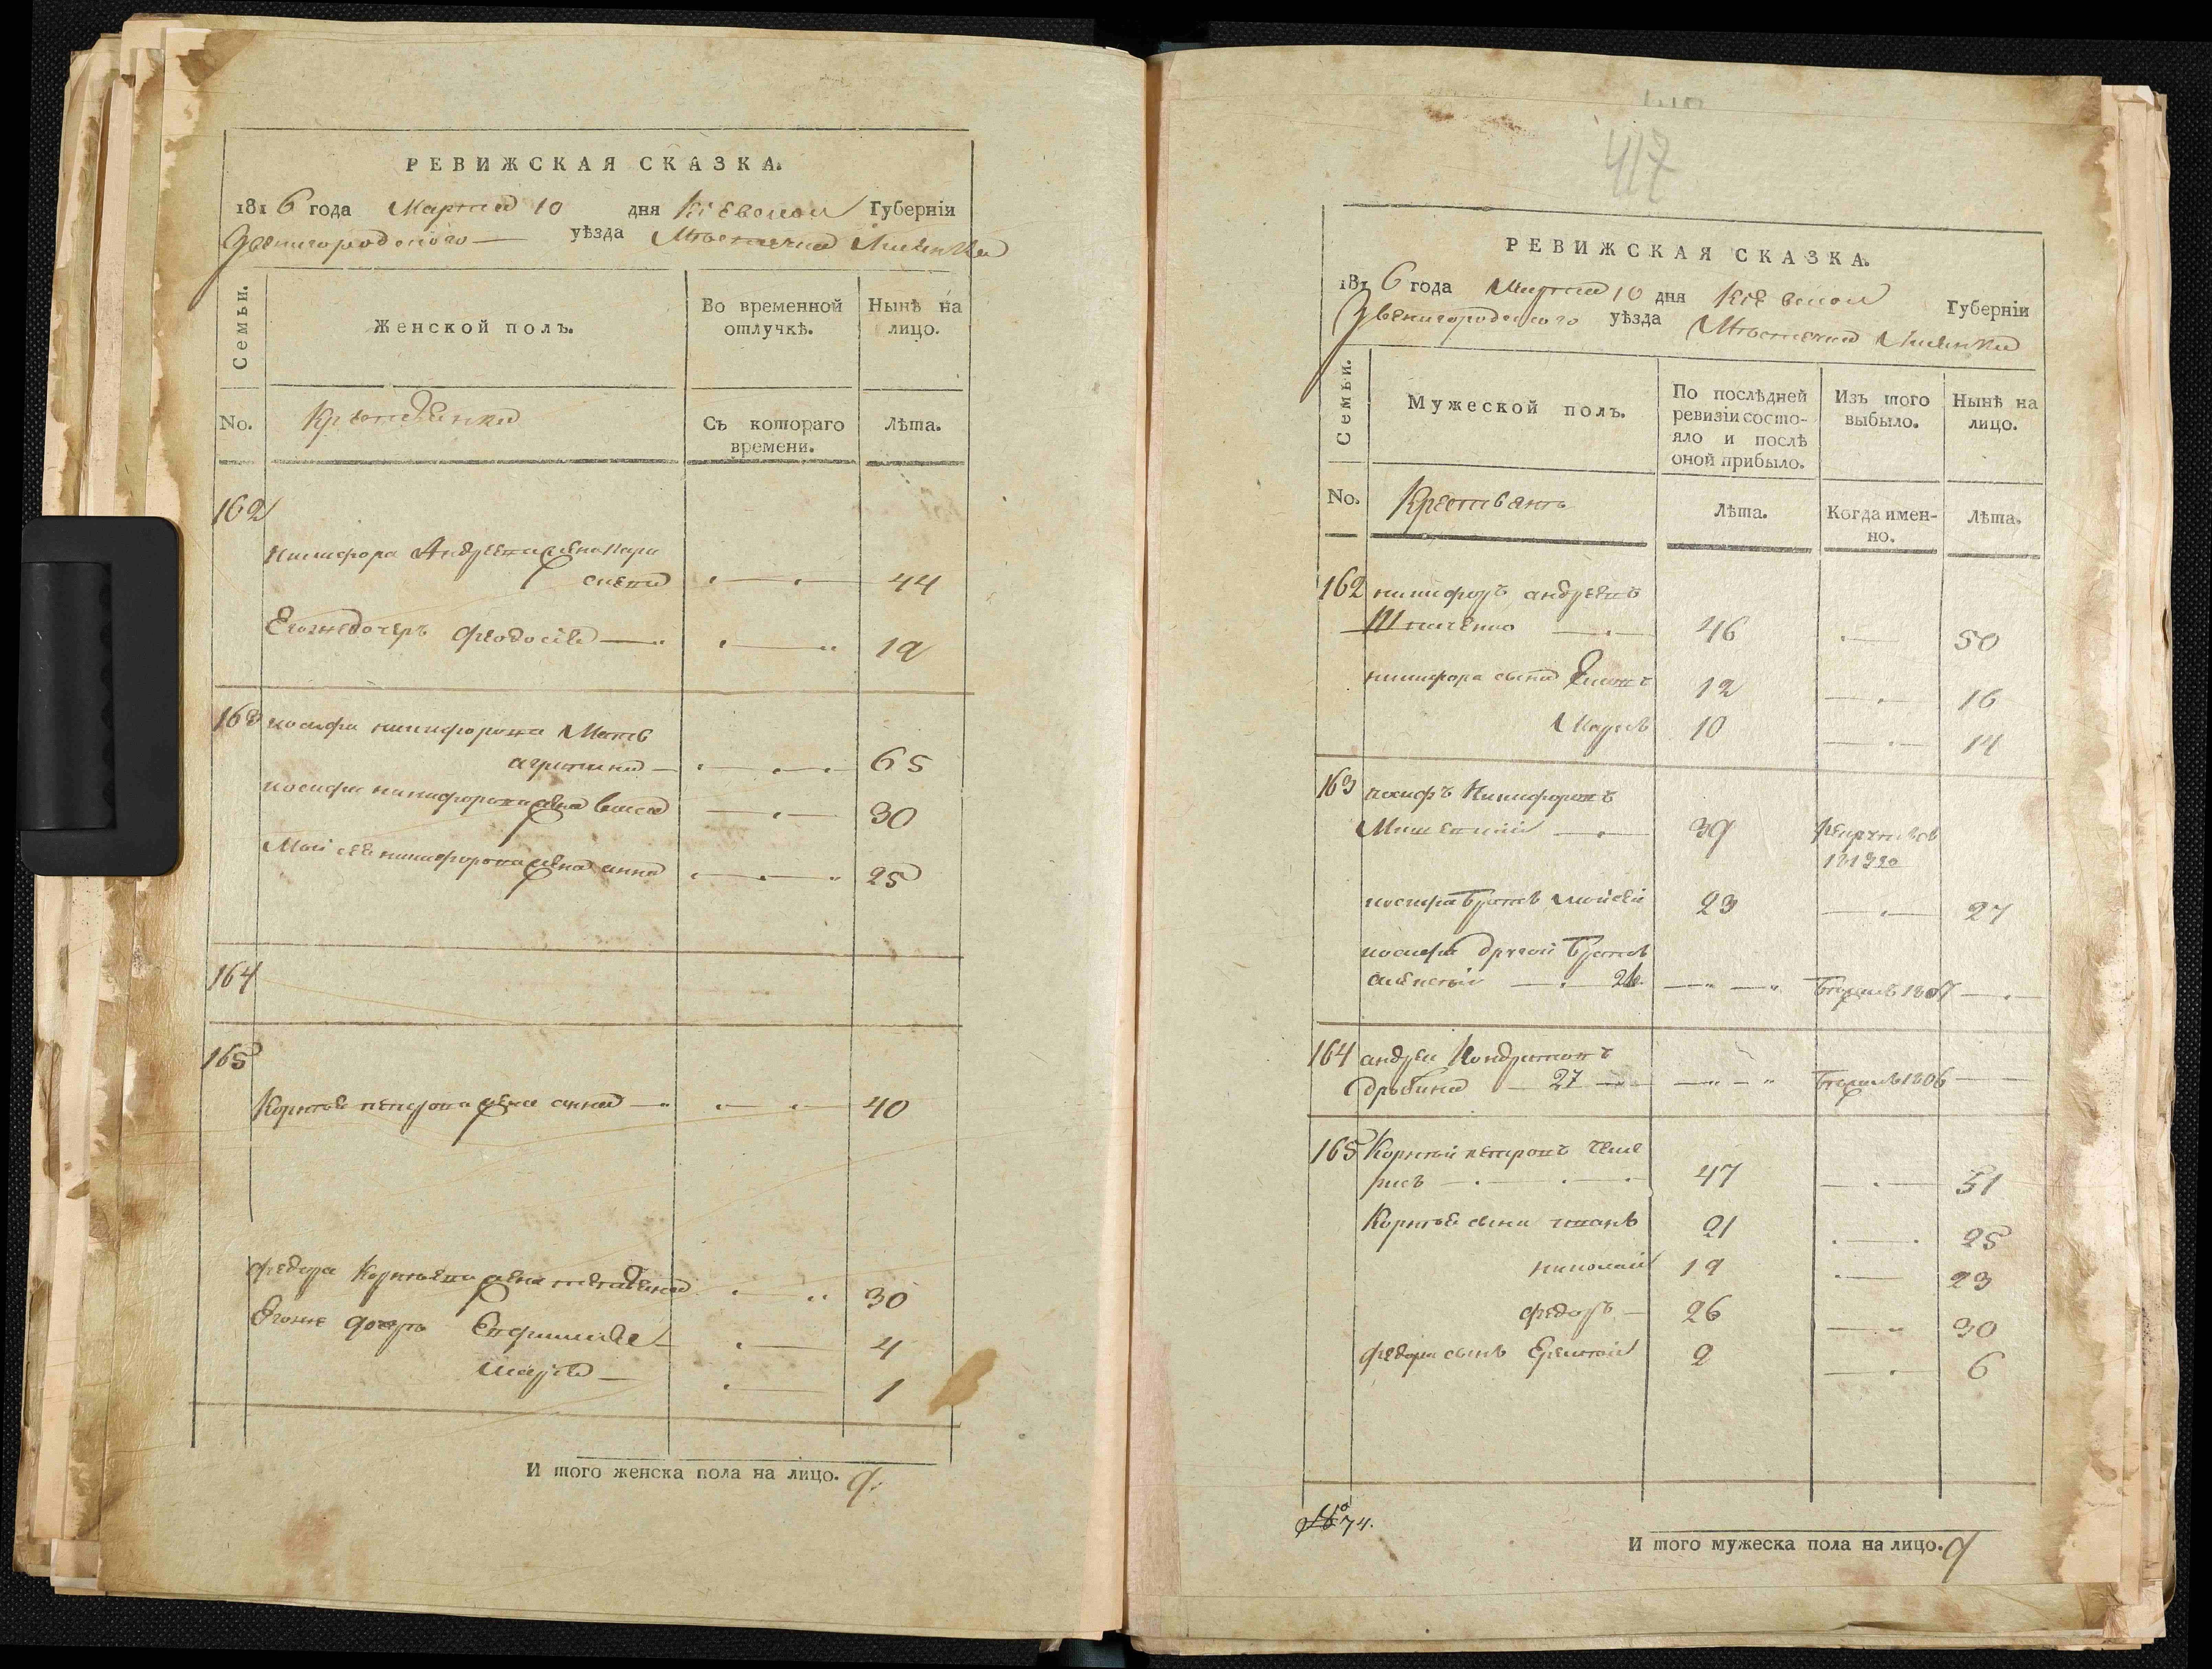 РЕВИЖСКАЯ СКАЗКА.
1816 года Марта 10 дня Кіевской Губерніи
Звенигородского уѣзда Мѣстечка Лисянки
Семьи.
Женской полъ.
Во временной отлучкѣ.
Нынѣ на лицо.
No.
Съ котораго времени.
Лѣта.
162
никифора Андреева жена пара
скева 44
Его же дочеръ феодосія 12
163 иосифа никифорова Мать
агрипина 65
иосифа никифорова жена васса 30
Мойсея никифорова жена анна 25
164
165
Корнѣя петрова жена анна 40
федора Корнѣева жена 30
Его же дочерь Евфимия 4
марія 1
И того женска пола на лицо. 9.
417
РЕВИЖСКАЯ СКАЗКА.
1816 года Марта 10 дня Кіевской Губерніи
Звенигородского уѣзда Мѣстечка Лисянки
Семьи.
Мужеской полъ.
По послѣдней ревизіи состояло и послѣ оной прибыло.
Изъ того выбыло.
Нынѣ на лицо.
No.
Лѣта.
Когда именно.
Лѣта.
162 никифоръ андреевъ
46 50
никифора сына 12 16
10 14
163 иосифъ Никифоровъ
39
иосифа братъ мойсей 23 27
иосифа другой братъ
26. 1807
164 андрей Кондратовъ
27 1806
165 Корнѣй петровъ
47 51
Корнѣя сыни иванъ 21 25
николай 19 23
федоръ 26 30
федора сынъ Еремѣй 2 6
№ 74.
И того мужеска пола на лицо. 9